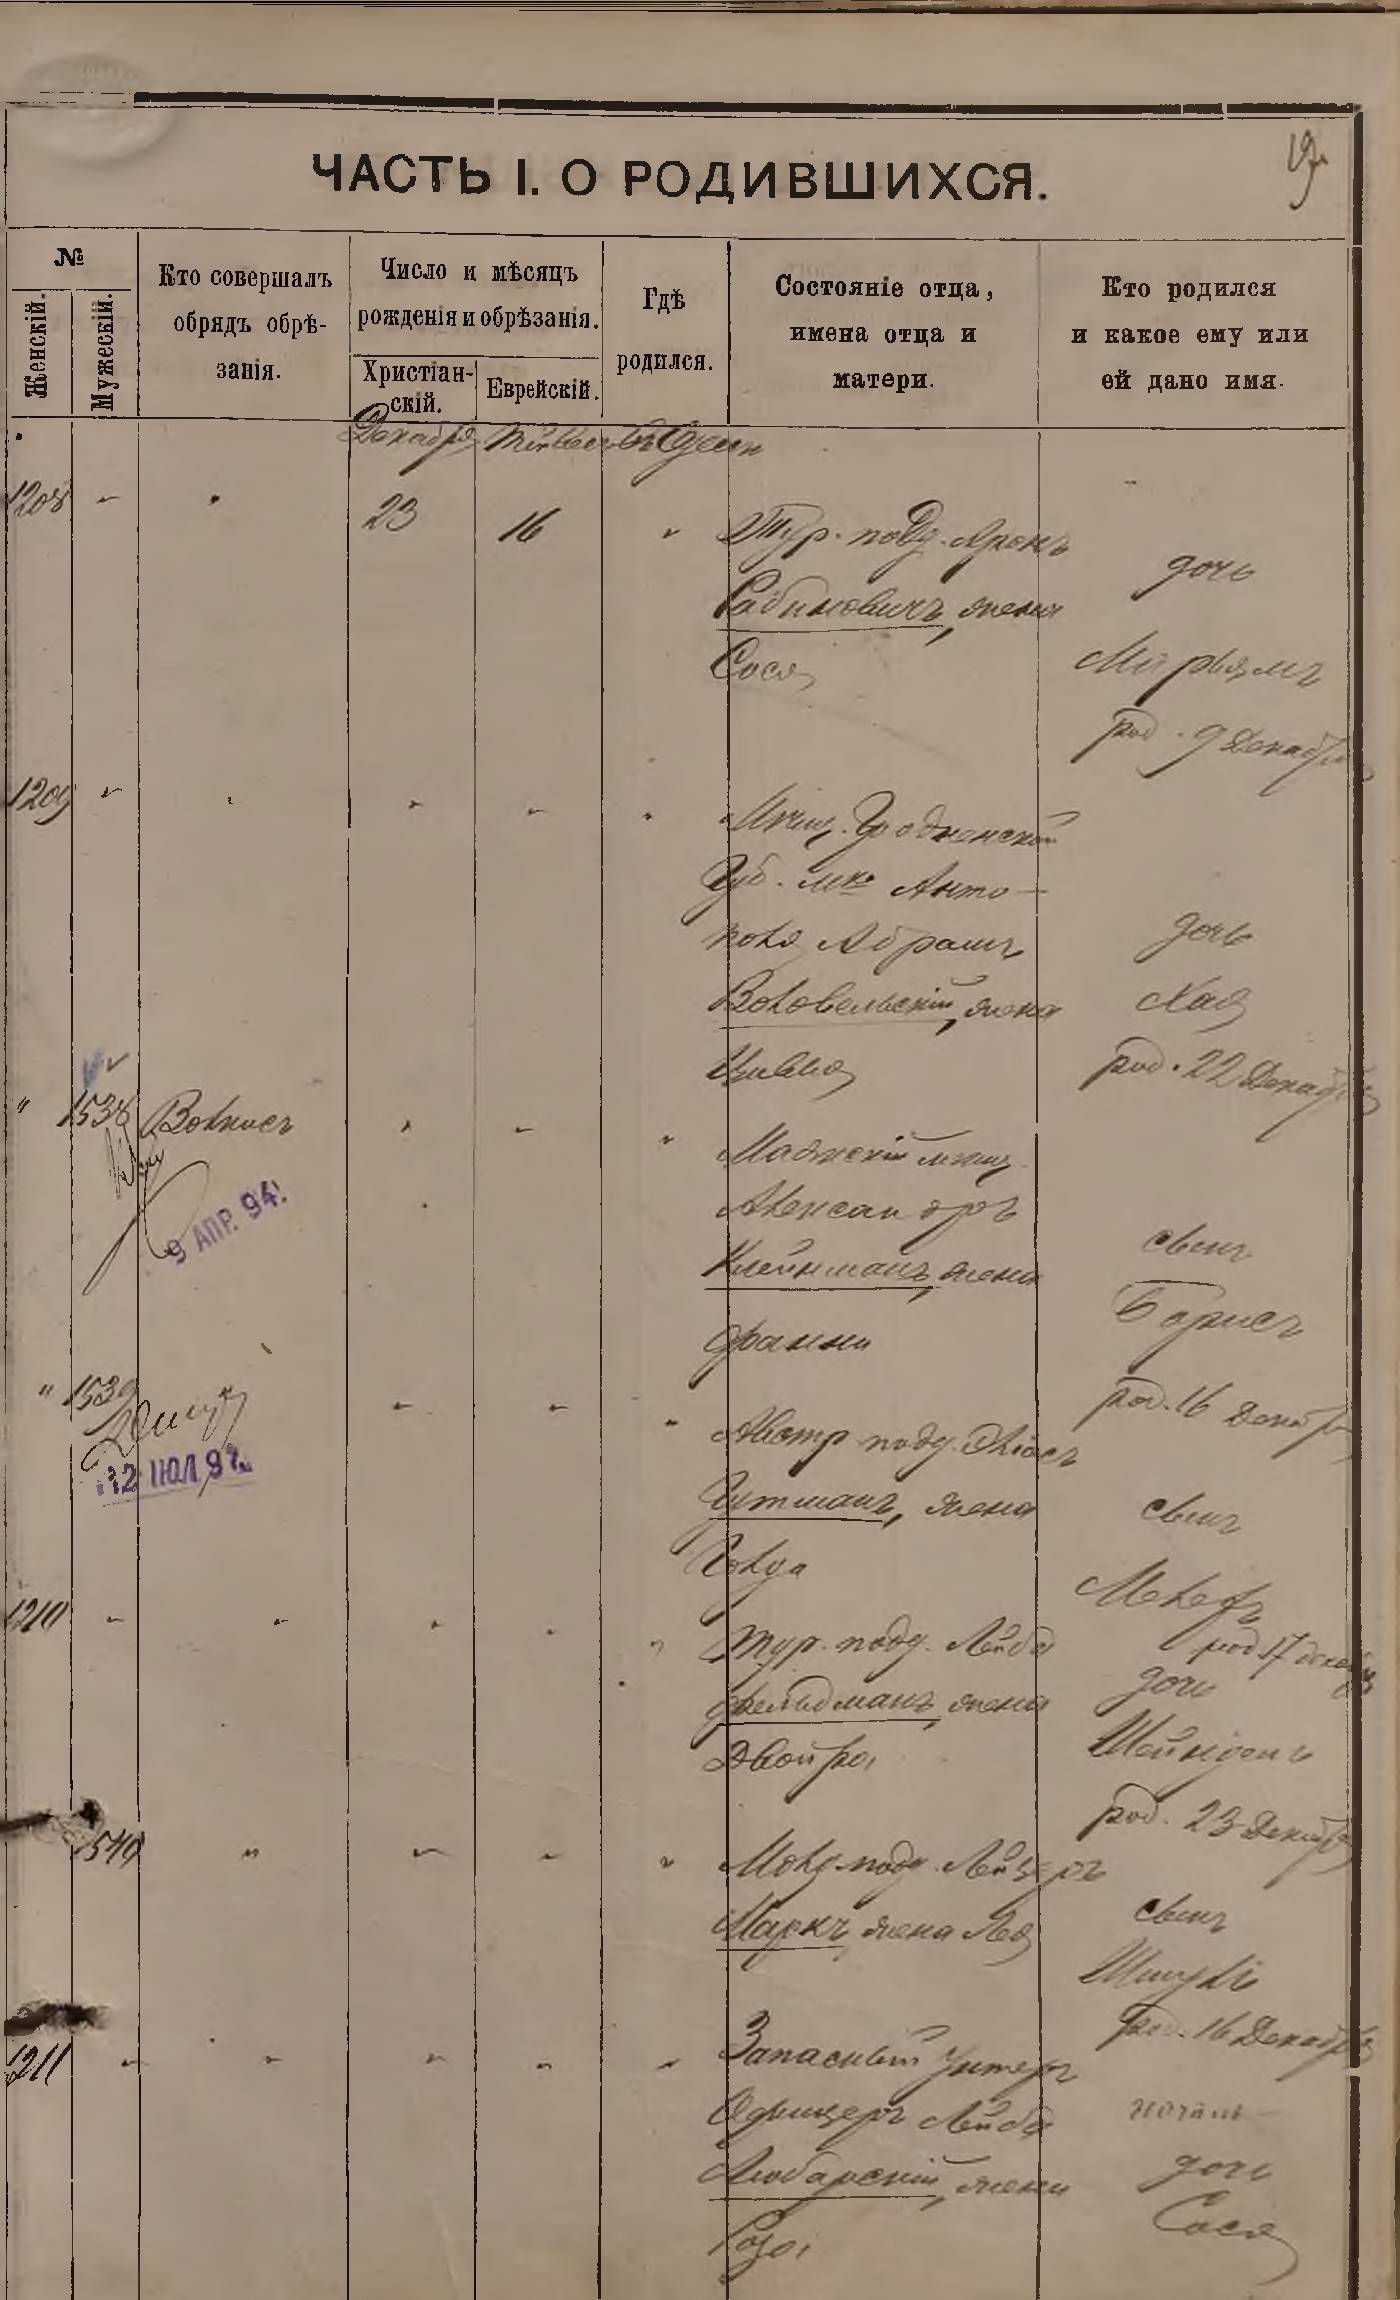 ЧАСТЬ I. О РОДИВШИХСЯ.
№
Женскій.
Мужескій.
Кто совершалъ
обрядъ обрѣ-
занія.
Число и мѣсяцъ
рожденія и обрѣзанія.
Христіан-
скій.
Еврейскій.
Гдѣ
родился.
Состояніе отца,
имена отца и
матери.
Кто родился
и какое ему или
ей дано имя.
Декабря
1208 23 16 Тур. подд. Аронъ
Рабиновичъ, жена
Сося
дочь
Мирьямъ
род. 9 Декабря
1209 Мѣщ. Гродненской
Губ. мко Анто-
поля Абрамъ
Воловельскій, жена
Цивья
дочь
Хая
род. 22 Декабря
" 1538 Волкисъ
9 АПР. 94.
Мѣщ.
Александръ
Клейнманъ, жена
Фанни
сынъ
Борисъ
род. 16 Декабря
" 1539
12 ІЮЛ 97
Австр подд. Эліасъ
Гутманъ, жена
Голда
сынъ
Мелехъ
род 17 декабря
1210 Тур. подд. Лейба
Фельдманъ, жена
Двойра
дочь
Шейндель
род. 23 Декабря
1540 Молд. подд. Лейзеръ
Маркъ жена Лея
сынъ
Шмуль
род. 16 Декабря
1211 Запасный Унтеръ
Офицеръ Лейба
Любарскій, жена
Роза
дочь
Сося